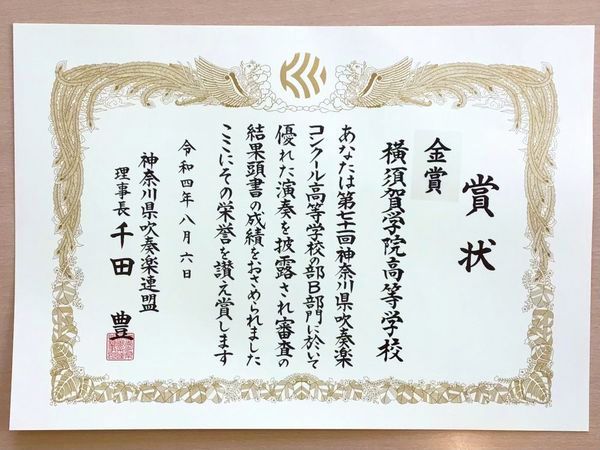 賞状
金賞
横須賀学院高等学校
あなたは第七十一回神奈川県吹奏楽
コンクール高等学校の部B部門に於いて
優れた演奏を披露され審査の
結果頭書の成績をおさめられました
ここにその栄誉を讃え賞します
令和四年八月六日
神奈川県吹奏楽連盟
理事長 千田 豊